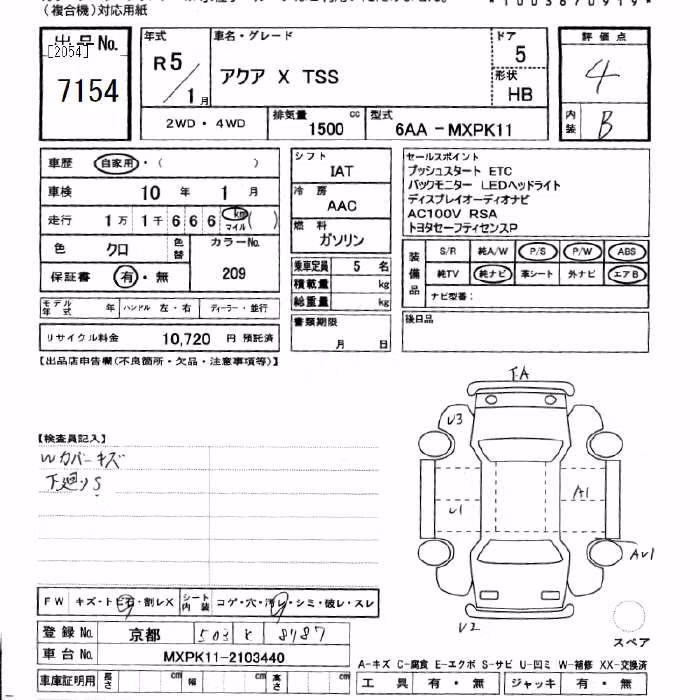 （複合機）対応用紙
出品No.
[2054]
7154
年式
R5/1月
車名・グレード
アクア X TSS
ドア
5
形状
HB
評価点
4
内装
B
2WD・4WD
排気量 1500 cc
型式 6AA-MXPK11
車歴 自家用・（ ）
車検 10 年 1 月
走行 1万1千666 km マイル（ ）
色 クロ
色替
カラーNo.
209
保証書 有・無
モデル年式 年
ハンドル 左・右
ディーラー・並行
リサイクル料金 10,720 円 預託済
シフト
IAT
冷房
AAC
燃料
ガソリン
乗車定員 5 名
積載量 kg
総重量 kg
書類期限
月 日
セールスポイント
プッシュスタート ETC
バックモニター LEDヘッドライト
ディスプレイオーディオナビ
AC100V RSA
トヨタセーフティセンスP
装備品
S/R 純A/W P/S P/W ABS
純TV 純ナビ 革シート 外ナビ エアB
ナビ型番：
後日品
【出品店申告欄(不良箇所・欠品・注意事項等)】
【検査員記入】
Wカバーキズ
下廻りS
V3
U1
A1
AU1
V2
スペア
FW キズ・トビ石・割レX
シート内装 コゲ・穴・汚レ・シミ・破レ・スレ
登録No. 京都 503 8187
車台No. MXPK11-2103440
車庫証明用 長さ cm 幅 cm 高さ cm
A-キズ C-腐食 E-エクボ S-サビ U-凹ミ W-補修 XX-交換済
工具 有・無 ジャッキ 有・無